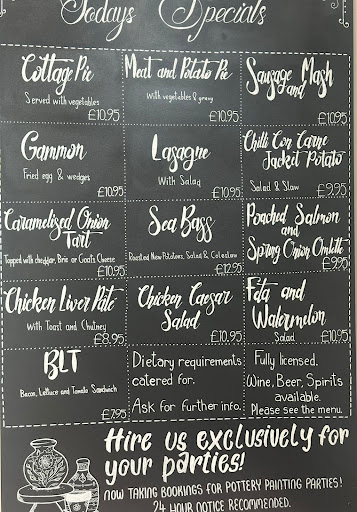 Todays Specials
Cottage Pie
Served with vegetables
£10.95
Meat and Potato Pie
With vegetables & gravy
£10.95
Sausage and Mash
£10.95
Gammon
Fried egg & wedges
£10.95
Lasagne
With Salad
£10.95
Chilli Con Carne
Jacket Potato
Salad & Slaw
£9.95
Caramelised Onion
Tart
Topped with cheddar, Brie or Goats Cheese
£10.95
Sea Bass
Roasted New Potatoes, Salad & Coleslaw
£12.95
Poached Salmon
and
Spring Onion Omlette
£9.95
Chicken Liver Pâté
With Toast and Chutney
£8.95
Chicken Caesar
Salad
£10.95
Feta and
Watermelon
Salad
£10.95
BLT
Bacon, Lettuce and Tomato Sandwich
£7.95
Dietary requirements
catered for.
Ask for further info.
Fully licensed.
Wine, Beer, Spirits
available.
Please see the menu.
Hire us exclusively for
your parties!
NOW TAKING BOOKINGS FOR POTTERY PAINTING PARTIES!
24 HOUR NOTICE RECOMMENDED.